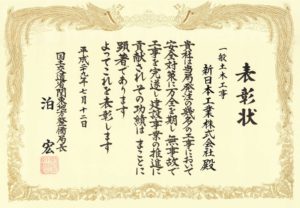 表彰状
一般土木工事
新日本工業株式会社 殿
貴社は当局発注の頭書の工事において
安全対策に万全を期し無事故で
工事を完遂し建設事業の推進に
貢献されその功績はまことに
顕著であります
よってこれを表彰します
平成二十九年七月十二日
国土交通省関東地方整備局長
泊 宏